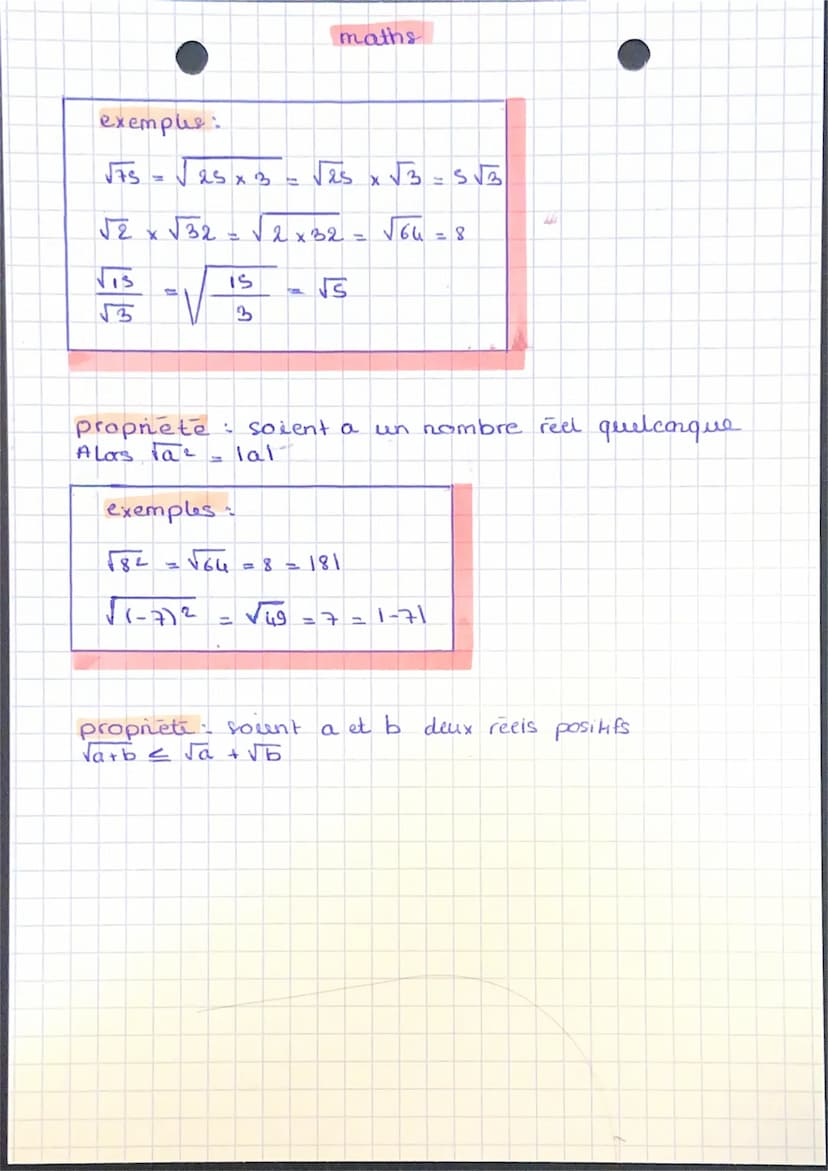 maths
exemples :
√75 = √25 x 3 = √25 x √3 = 5√3
√2 x √32 = √2 x 32 = √64 = 8
√15/√3 = √15/3 = √5
propriété : soient a un nombre réel quelconque
Alors √a² = |a|
exemples :
√8² = √64 = 8 = |8|
√(-7)² = √49 = 7 = |-7|
propriété : soient a et b deux réels positifs
√a+b ≤ √a + √b